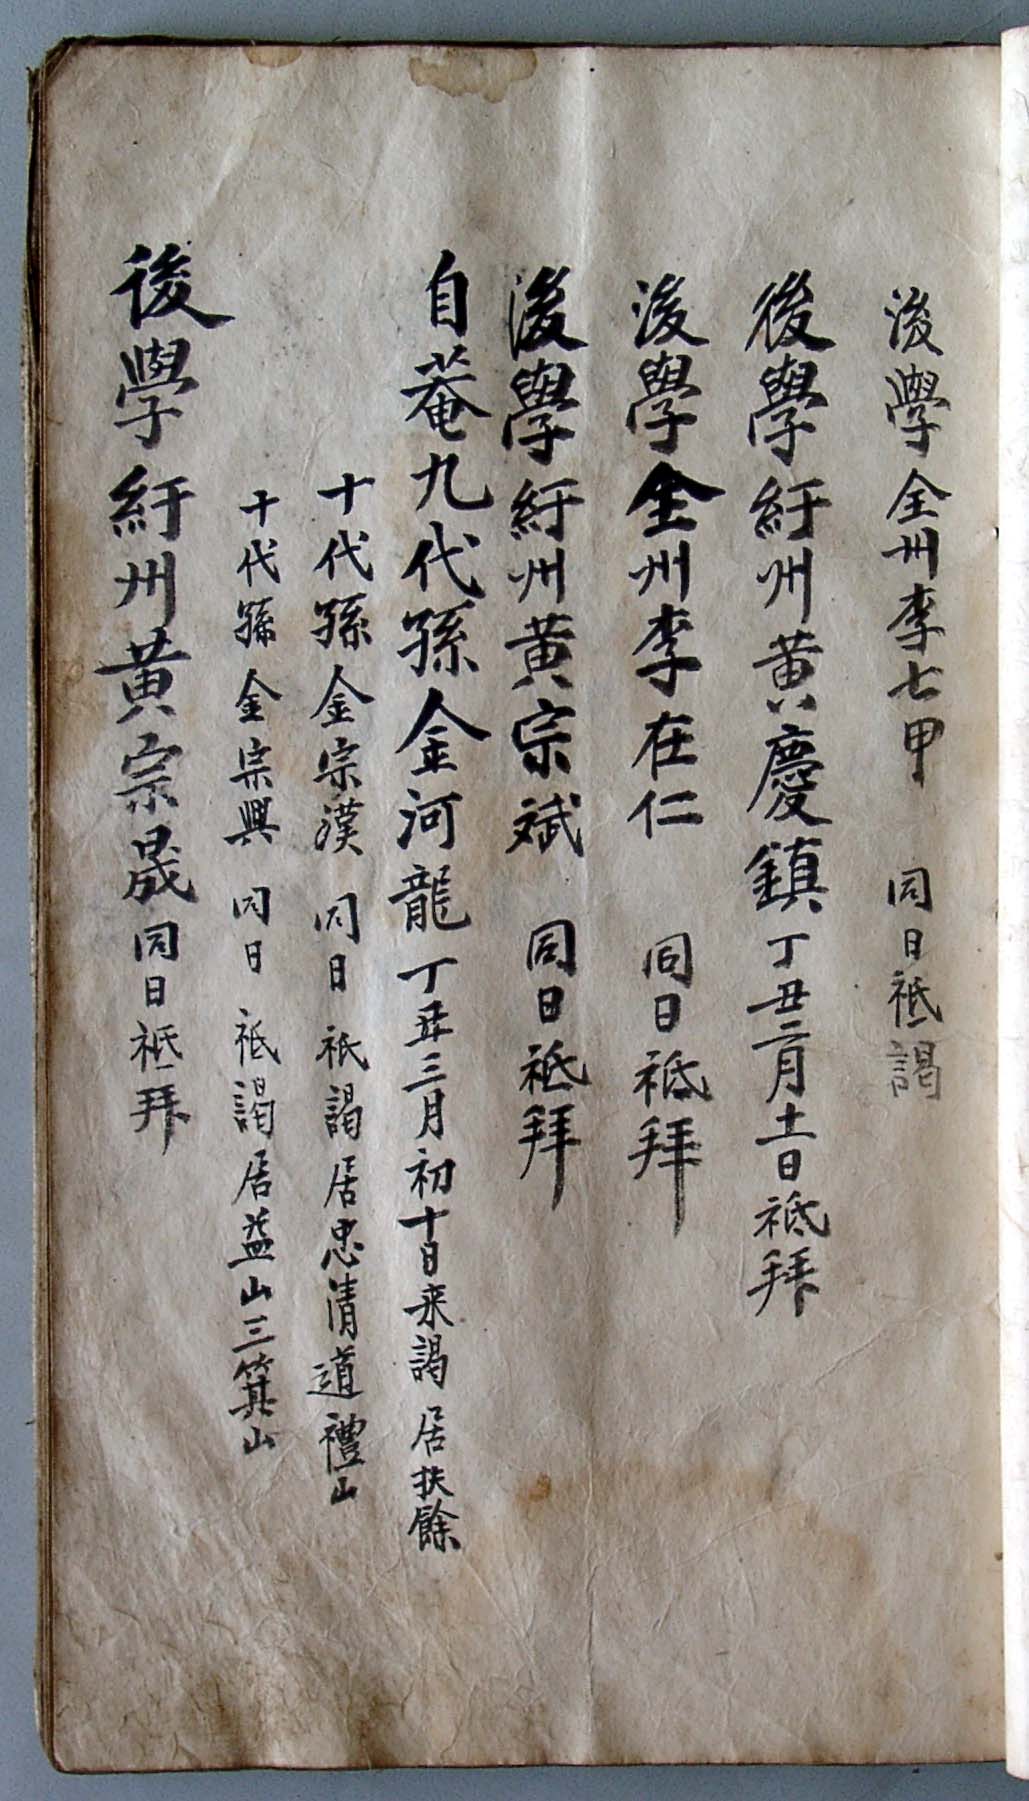 後學全州李七甲 同日祗謁
後學紆州黃慶鎮丁丑二月十一日祗拜
後學全州李在仁 同日祗拜
後學紆州黃宗斌 同日祗拜
自菴九代孫金河龍丁丑三月初十日来謁居扶餘
十代孫金宗漢 同日祗謁居忠清道禮山
十代孫金宗興 同日祗謁居益山三箕山
後學紆州黃宗晟同日祗拜